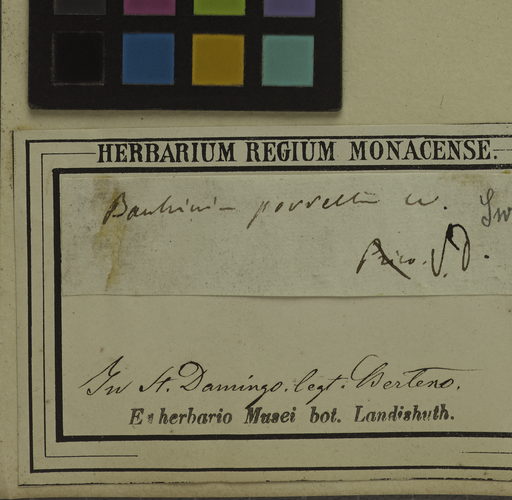 HERBARIUM REGIUM MONACENSE.
Bauhinia porrecta w. Sw
Prico. S. D.
In St. Domingo. legt. Bertero.
Ex herbario Musei bot. Landishuth.